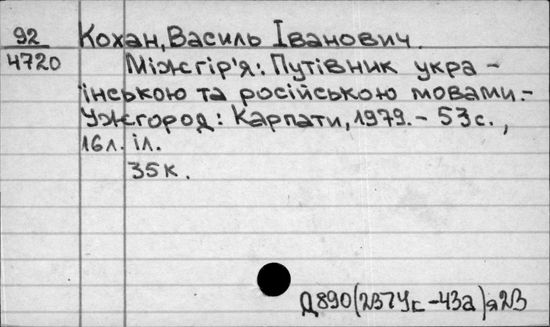 92
4720
Кохан, Василь Іванович.
Міжгір'я: Путівник укра-
їнською та російською мовами.-
Ужгород: Карпати, 1979.- 53 с.,
16 л. іл.
35 к.
Д890(2З7Ус-43а)я2З